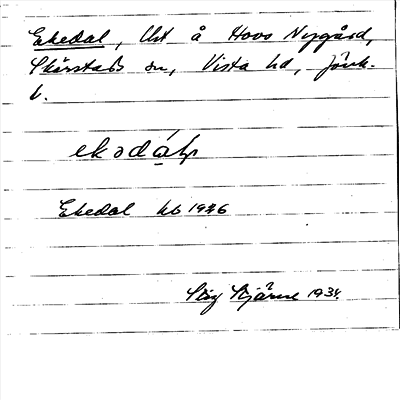 Ekedal, lht å Hovs Nygård,
Skärstads sn, Vista hd, Jönk.
l.
ekədál
Ekedal hb 1926
Stig Stjärne 1934.